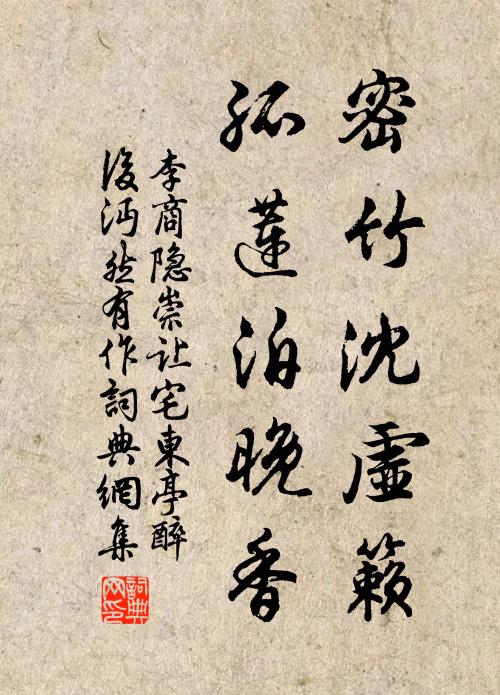 密竹沈虛籟
孤蓮泊晚香
李商隐崇让宅東亭醉
後沔然有作詞典網集
詞典
网印